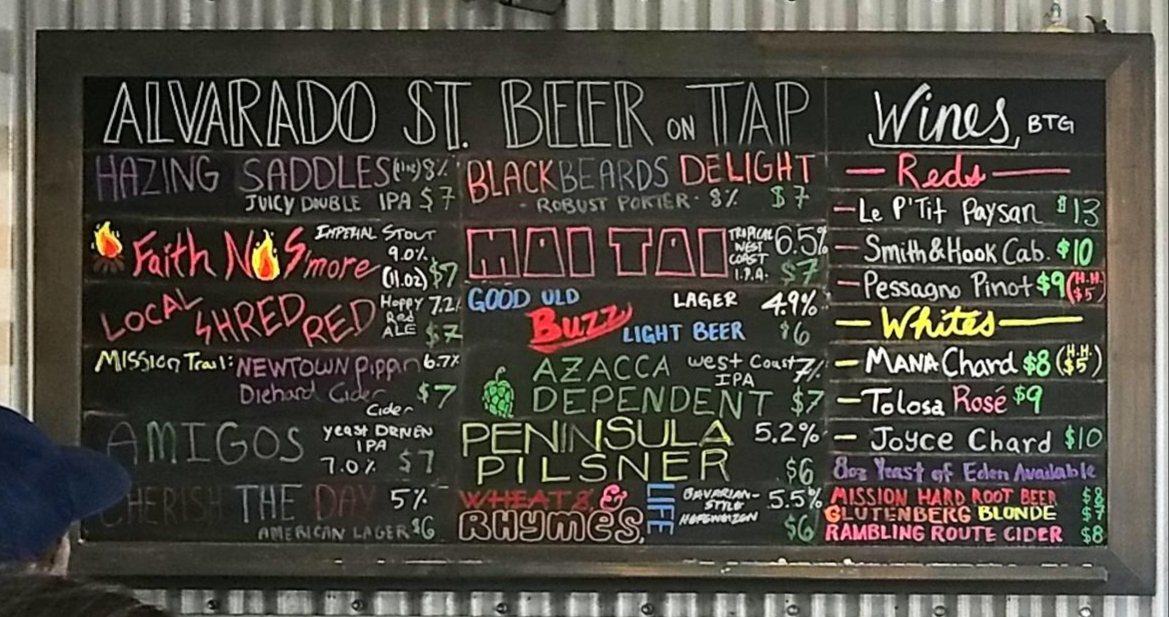 ALVARADO ST. BEER ON TAP
HAZING SADDLES (11oz) 8%
JUICY DOUBLE IPA $7
Faith No S'more IMPERIAL STOUT
9.0%
(11.oz) $7
LOCAL SHRED RED Hoppy Red ALE 7.2%
$7
Mission Trail: NEWTOWN Pippin 6.7%
Diehard Cider $7
Cider
AMIGOS YEAST DRIVEN
IPA
7.0% $7
CHERISH THE DAY 5%
AMERICAN LAGER $6
BLACKBEARDS DELIGHT
- ROBUST PORTER - 8% $7
MAI TAI TROPICAL WEST COAST I.P.A. 6.5%
$7
GOOD OLD LAGER 4.9%
Buzz LIGHT BEER $6
AZACCA West Coast 7%
IPA
DEPENDENT $7
PENINSULA 5.2%
PILSNER $6
WHEATS & RHYMES LIFE BAVARIAN-STYLE HEFEWEIZEN 5.5%
$6
Wines, BTG
— Reds —
– Le P'Tit Paysan $13
– Smith & Hook Cab. $10
– Pessagno Pinot $9 (H.H. $5)
— Whites —
– MANA Chard $8 (H.H. $5)
– Tolosa Rosé $9
– Joyce Chard $10
8oz Yeast of Eden Available
MISSION HARD ROOT BEER $8
GLUTENBERG BLONDE $7
RAMBLING ROUTE CIDER $8